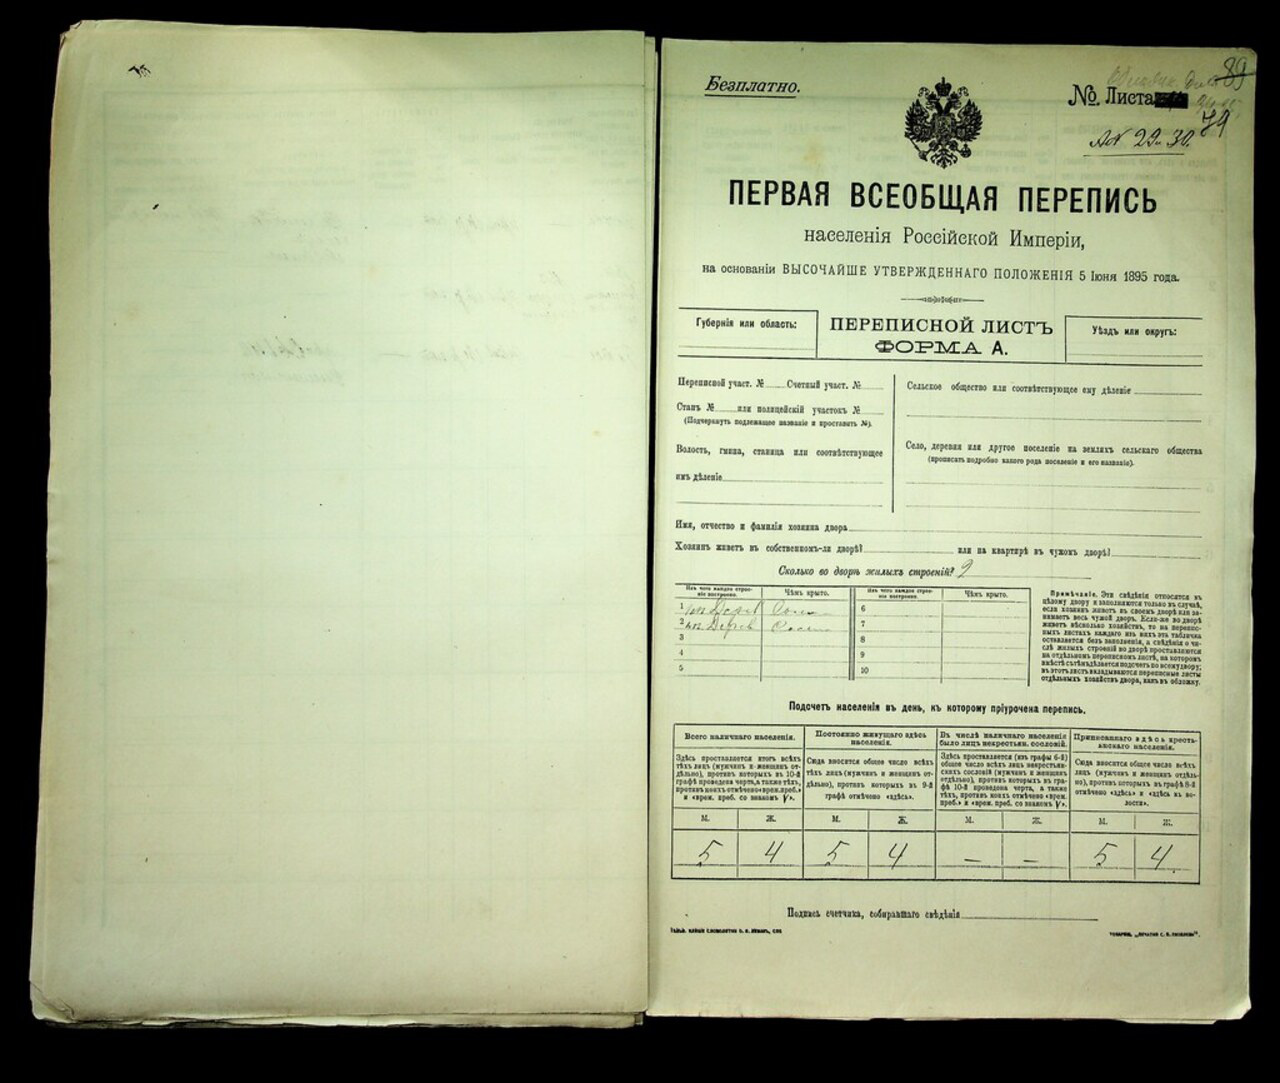 Безплатно.
89
№. Листа
79
№№ 29 и 30.
ПЕРВАЯ ВСЕОБЩАЯ ПЕРЕПИСЬ
населенія Россійской Имперіи,
на основаніи ВЫСОЧАЙШЕ УТВЕРЖДЕННАГО ПОЛОЖЕНІЯ 5 Іюня 1895 года.
Губернія или область:
ПЕРЕПИСНОЙ ЛИСТЪ
ФОРМА А.
Уѣздъ или округъ:
Переписной участ. № Счетный участ. №
Станъ № или полицейскій участокъ №
(Подчеркнуть подлежащее названіе и проставить №).
Волость, гмина, станица или соотвѣтствующее
имъ дѣленіе
Сельское общество или соотвѣтствующее ему дѣленіе
Село, деревня или другое поселеніе на земляхъ сельскаго общества
(прописать подробно какого рода поселеніе и его названіе).
Имя, отчество и фамилія хозяина двора
Хозяинъ живетъ въ собственномъ-ли дворѣ? или на квартирѣ въ чужомъ дворѣ?
Сколько во дворѣ жилыхъ строеній? 2
Изъ чего каждое строеніе построено. Чѣмъ крыто. Изъ чего каждое строеніе построено. Чѣмъ крыто.
1 Дерев 6
2 Дерев 7
3 8
4 9
5 10
Примѣчаніе. Эти свѣдѣнія относятся къ
цѣлому двору и заполняются только въ случаѣ,
если хозяинъ живетъ въ своемъ дворѣ или занимаетъ
весь чужой дворъ. Если-же во дворѣ
живетъ нѣсколько хозяйствъ, то на переписныхъ
листахъ каждаго изъ нихъ эта табличка
оставляется безъ заполненія, а свѣдѣнія о числѣ
жилыхъ строеній во дворѣ проставляются
на отдѣльномъ переписномъ листѣ, на которомъ
вмѣстѣ съ тѣмъ дѣлается подсчетъ по всему двору;
въ этотъ листъ вкладываются переписные листы
отдѣльныхъ хозяйствъ двора, какъ въ обложку.
Подсчетъ населенія въ день, къ которому пріурочена перепись.
Всего наличнаго населенія.
Здѣсь проставляется итогъ всѣхъ
тѣхъ лицъ (мужчинъ и женщинъ отдѣльно),
противъ которыхъ въ 10-й
графѣ проведена черта, а также тѣхъ,
противъ коихъ отмѣчено «врем. преб.»
и «врем. преб. со знакомъ V».
Постоянно живущаго здѣсь
населенія.
Сюда вносится общее число всѣхъ
тѣхъ лицъ (мужчинъ и женщинъ отдѣльно),
противъ которыхъ въ 9-й
графѣ отмѣчено «здѣсь».
Въ числѣ наличнаго населенія
было лицъ некрестьян. сословій.
Здѣсь проставляется (изъ графы 6-й)
общее число всѣхъ лицъ некрестьянскихъ
сословій (мужчинъ и женщинъ
отдѣльно), противъ которыхъ въ графѣ
10-й проведена черта, а также
тѣхъ, противъ коихъ отмѣчено «врем.
преб.» и «врем. преб. со знакомъ V».
Приписаннаго здѣсь крестьянскаго
населенія.
Сюда вносится общее число всѣхъ
лицъ (мужчинъ и женщинъ отдѣльно),
противъ которыхъ въ графѣ 8-й
отмѣчено «здѣсь» и «здѣсь въ волости».
М. Ж. М. Ж. М. Ж. М. Ж.
5 4 5 4 – – 5 4
Подпись счетчика, собиравшаго свѣдѣнія